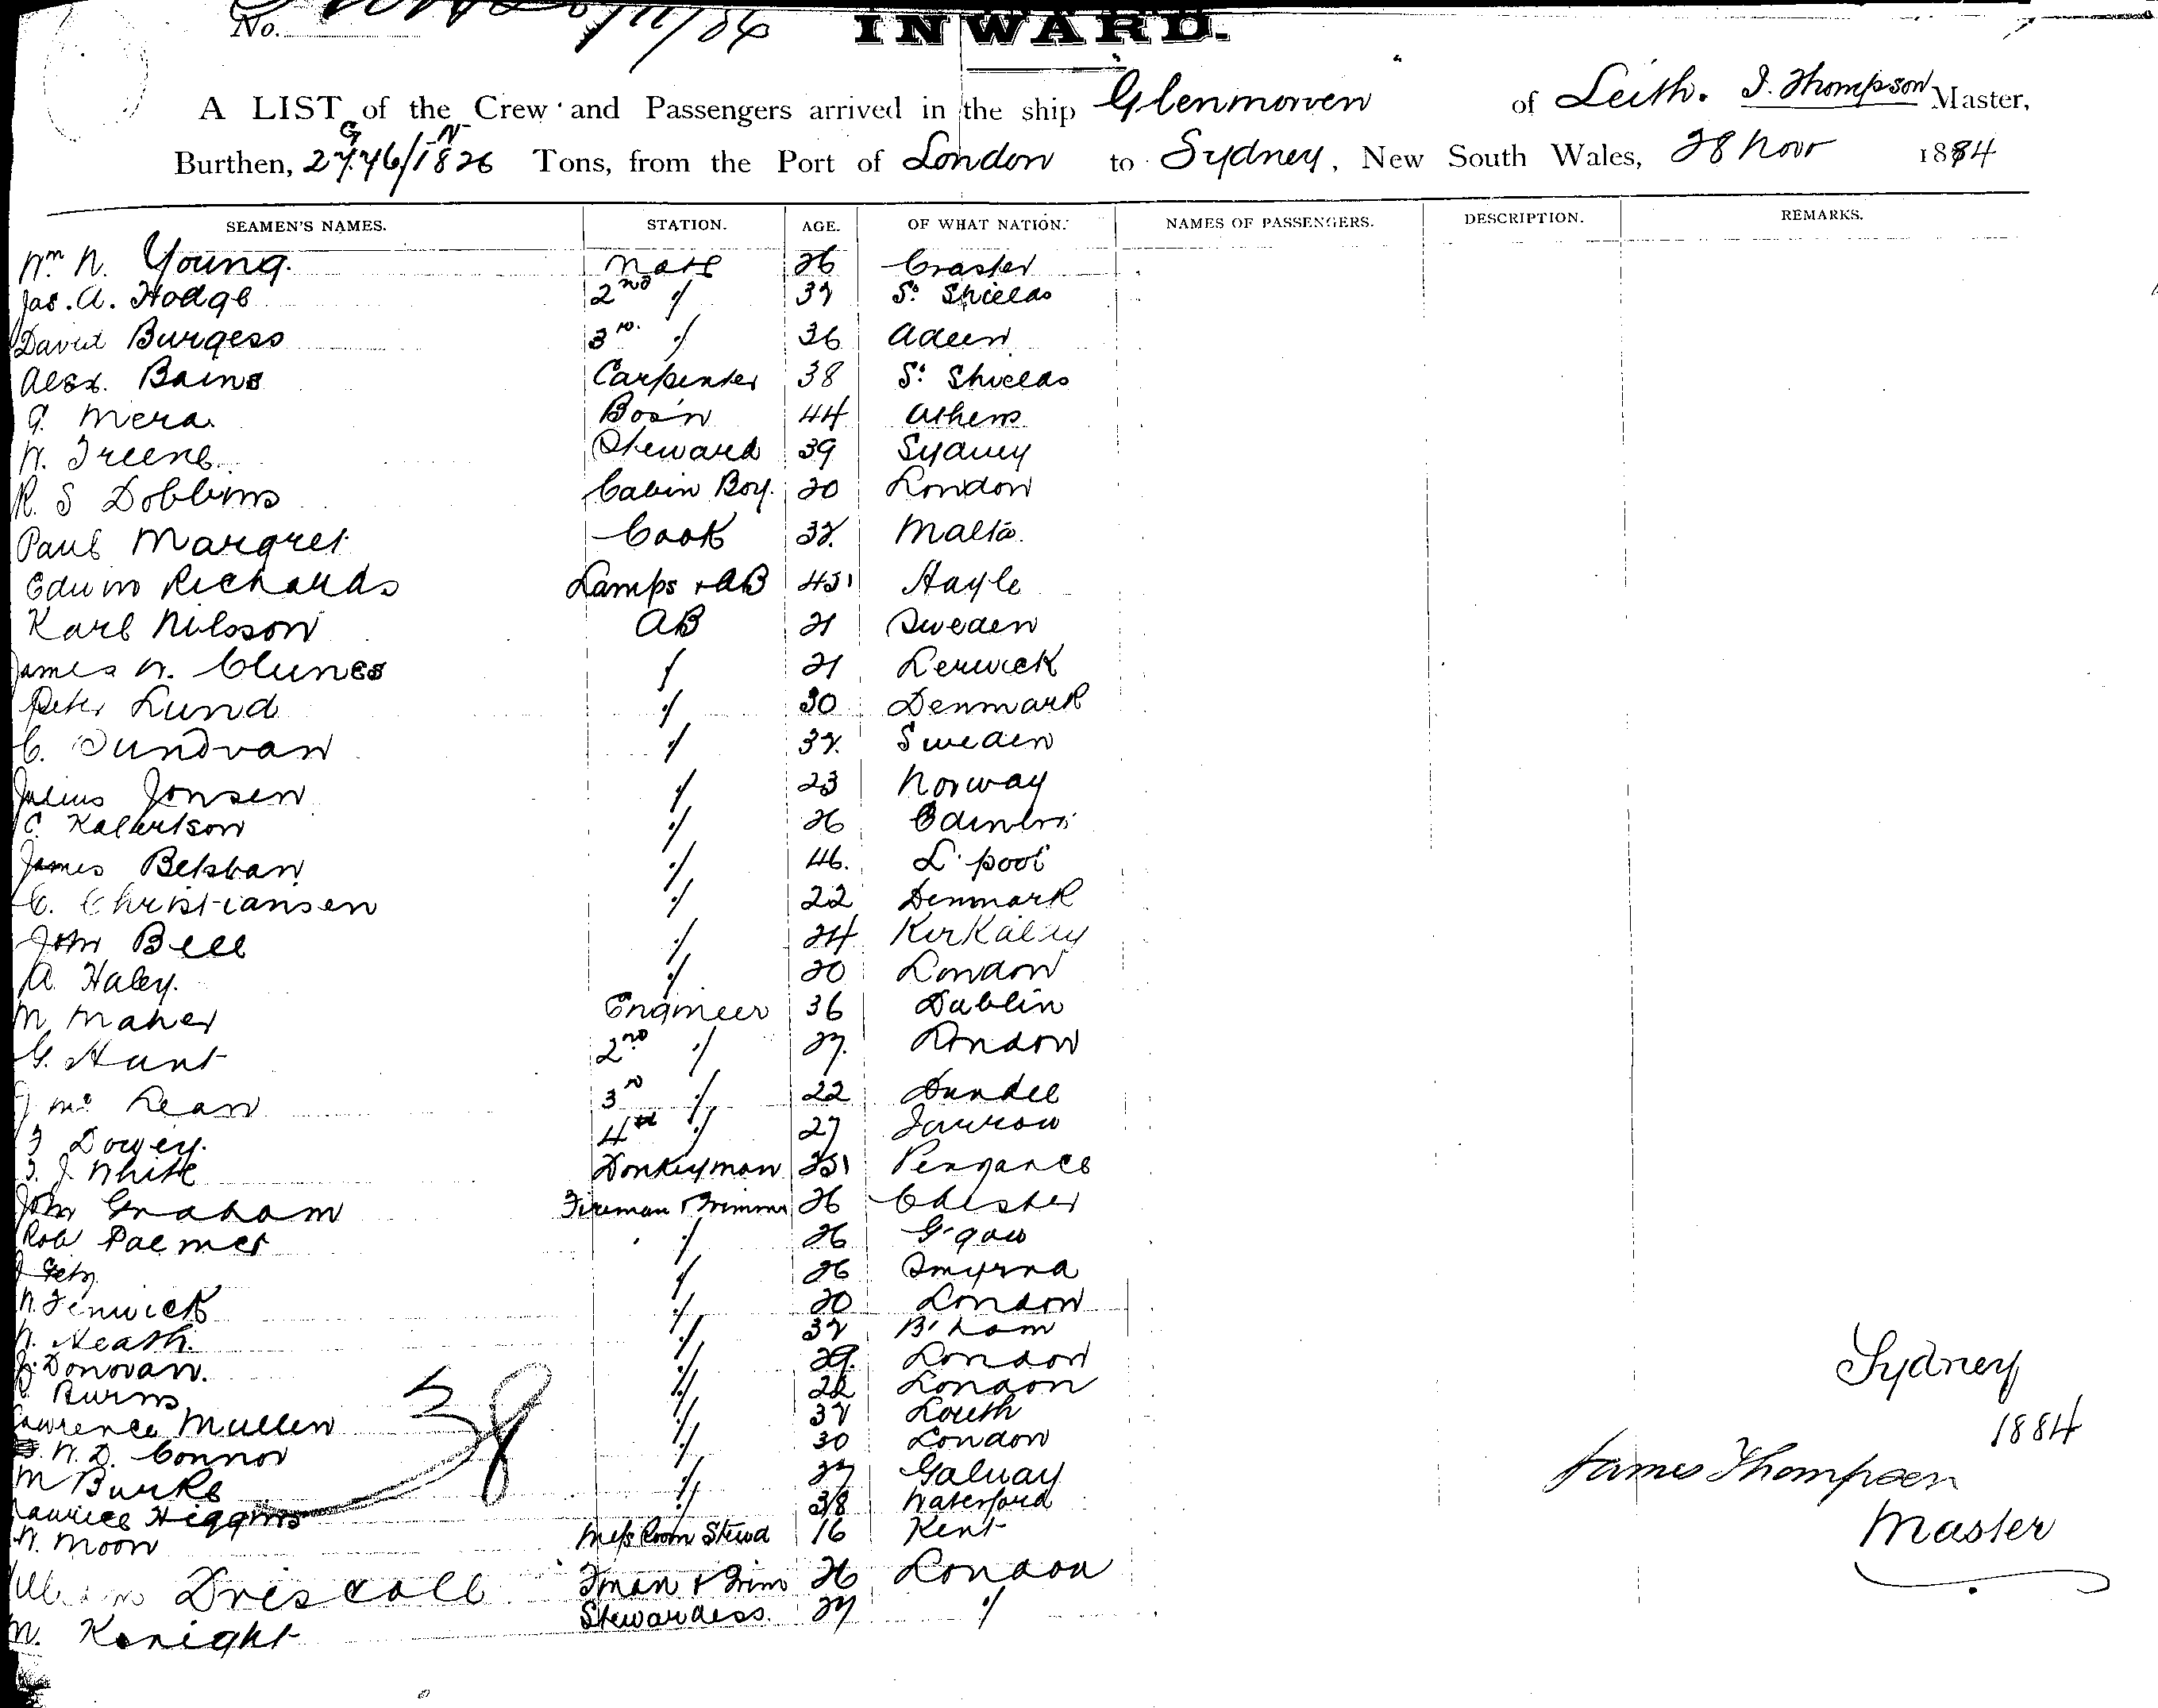 No. 11/84
INWARD.
A LIST of the Crew and Passengers arrived in the ship Glenmorven of Leith. J. Thompson Master,
G N
Burthen, 2746/1826 Tons, from the Port of London to Sydney, New South Wales, 28 Novr 1884
SEAMEN'S NAMES. STATION. AGE. OF WHAT NATION. NAMES OF PASSENGERS. DESCRIPTION. REMARKS.
Wm N. Young. Mate 26 Craster
Jas. A. Hodge 2nd " 32 So. Shields
David Burgess 3rd " 36 Adeen
Alex. Bains Carpenter 38 So. Shields
G. Mera Bos'n 44 Athens
W. Greene Steward 39 Sydney
R. S Dobbins Cabin Boy. 20 London
Paul Margret Cook 32. Malta.
Edwin Richards Lamps + AB 45 Hayle
Karl Nilsson AB 21 Sweden
James W. Clunes " 21 Lerwick
Peter Lund " 30 Denmark
C. Sundvan " 32. Sweden
Julius Jonsen " 23 Norway
C. Kalbertson " 26 Edinbro
James Belsban " 46. L'pool
C. Christiansen " 22 Denmark
John Bell " 24 Kirkaldy
A. Haley. " 20 London
M. Maher Engineer 36 Dublin
G. Hunt 2nd " 27. London
J Mc Lean 3rd " 22 Dundee
J Dowey. 4th " 27 Jarrow
T. J. White Donkeyman 25 Penzance
John Graham Fireman & Trimmer 26 Chester
Rob Palmer " 26 G'gow
J " 26 Smyrna
W. Fenwick " 20 London
W. Neath. " 32 B'ham
J. Donovan. " 29. London
Burns " 22 London
Lawrence Mullen " 32 Louth
W. D. Connor " 30 London
M Burke " 27 Galway
Maurice Higgins " 38 Waterford
W. Moon Mess Room Stewd 16 Kent
William Driscoll Fman & Trim 26 London
M. Knight Stewardess. 27 "
38
Sydney
1884
James Thompson
Master